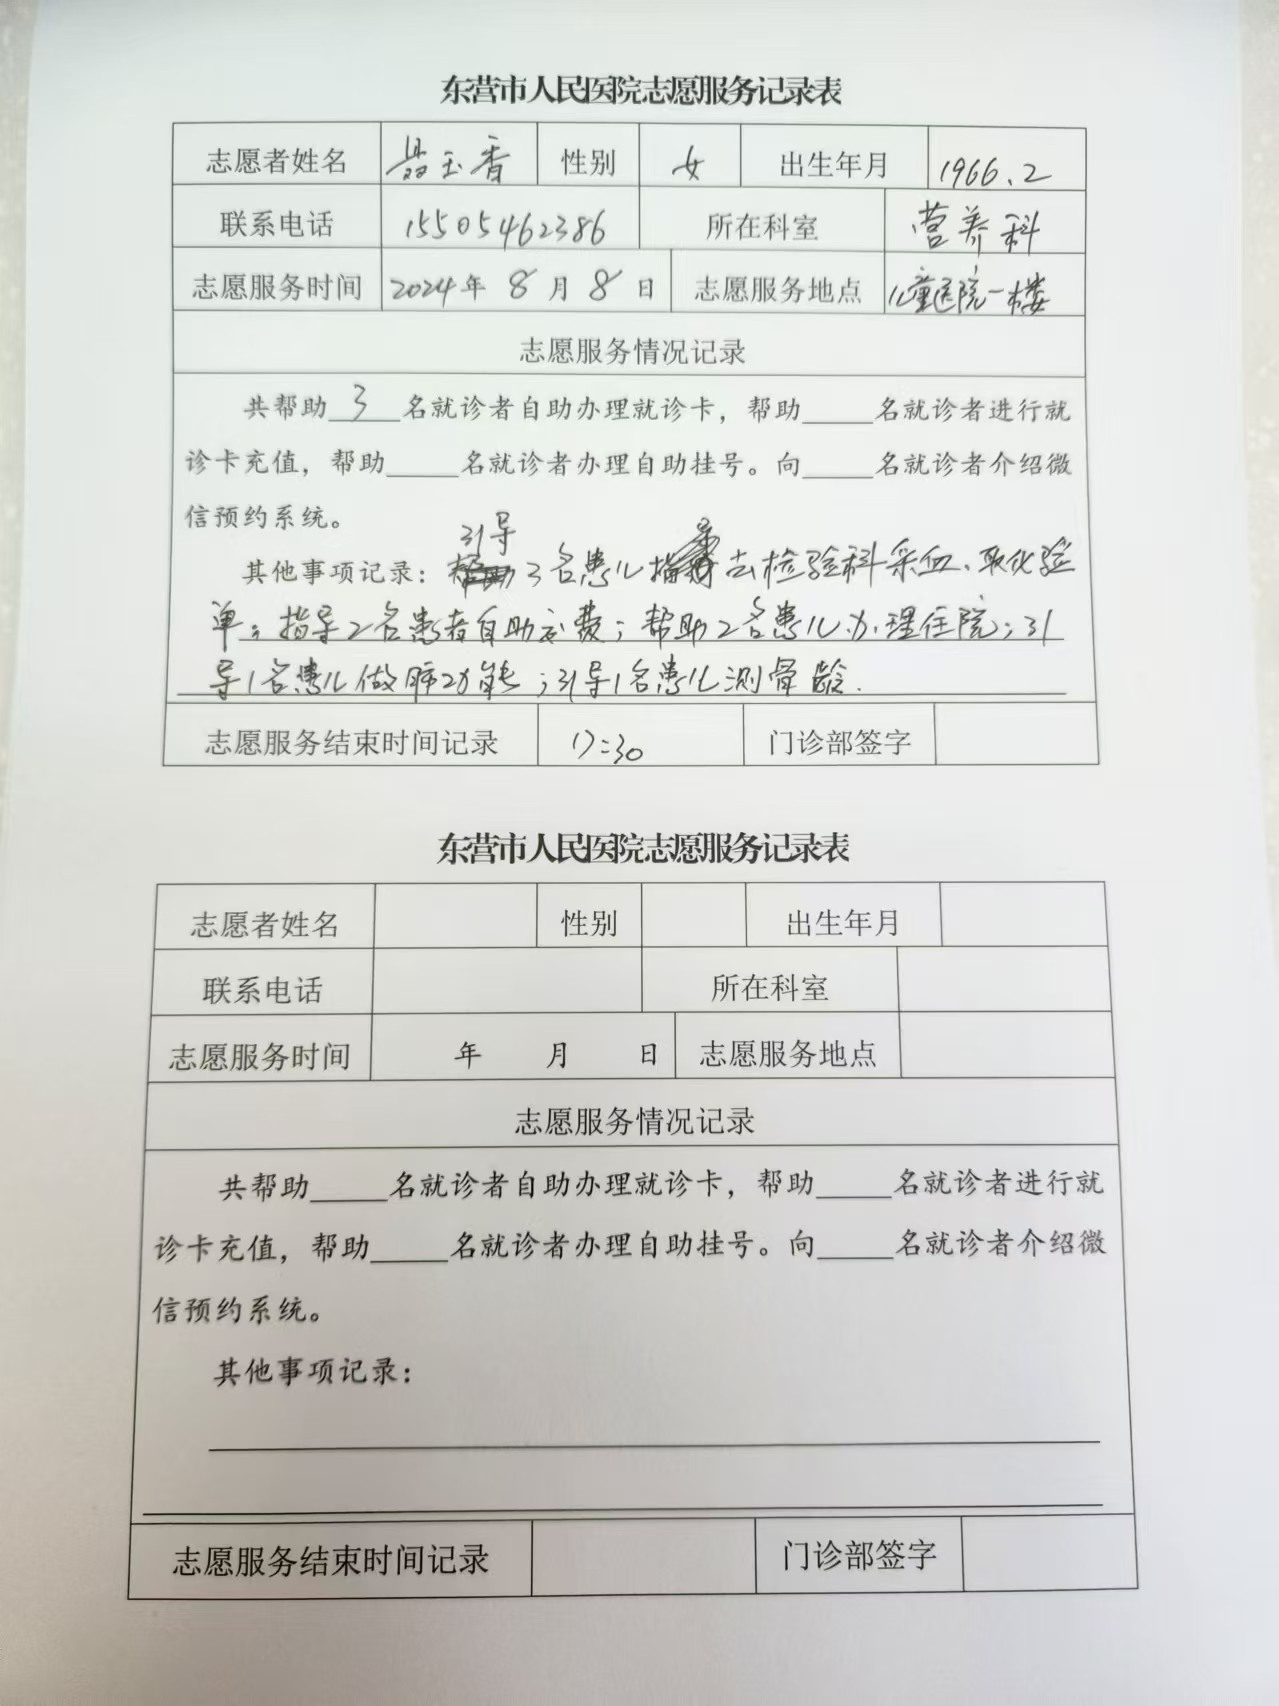 东营市人民医院志愿服务记录表
志愿者姓名 聂玉香 性别 女 出生年月 1966.2
联系电话 15505462386 所在科室 营养科
志愿服务时间 2024年 8 月 8 日 志愿服务地点 儿童医院一楼
志愿服务情况记录
共帮助 3 名就诊者自助办理就诊卡，帮助_____名就诊者进行就
诊卡充值，帮助_____名就诊者办理自助挂号。向_____名就诊者介绍微
信预约系统。
其他事项记录：引导3名患儿去检验科采血、取化验
单；指导2名患者自助交费；帮助2名患儿办理住院；引
导1名患儿做肺功能；引导1名患儿测骨龄.
志愿服务结束时间记录 17:30 门诊部签字
东营市人民医院志愿服务记录表
志愿者姓名 性别 出生年月
联系电话 所在科室
志愿服务时间 年 月 日 志愿服务地点
志愿服务情况记录
共帮助_____名就诊者自助办理就诊卡，帮助_____名就诊者进行就
诊卡充值，帮助_____名就诊者办理自助挂号。向_____名就诊者介绍微
信预约系统。
其他事项记录：
志愿服务结束时间记录 门诊部签字